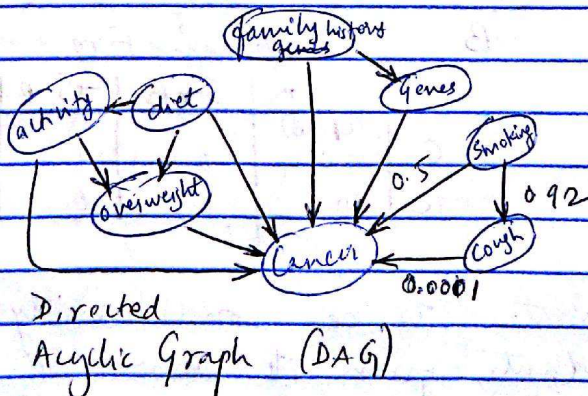 family history
genes
Genes
activity
diet
Smoking
0.5
0.92
overweight
Cancer
Cough
0.0001
Directed
Acyclic Graph (DAG)